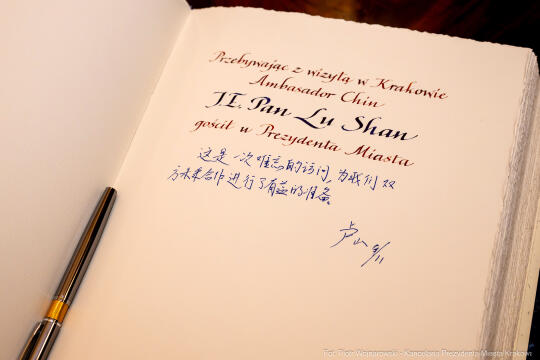 Przebywając z wizytą w Krakowie
Ambasador Chin
J.E. Pan Lu Shan
gościł u Prezydenta Miasta
这是一次难忘的访问,为我们双
方未来合作进行了有益的准备。
卢山 9/11
Fot. Piotr Wojnarowski - Kancelaria Prezydenta Miasta Krakowa